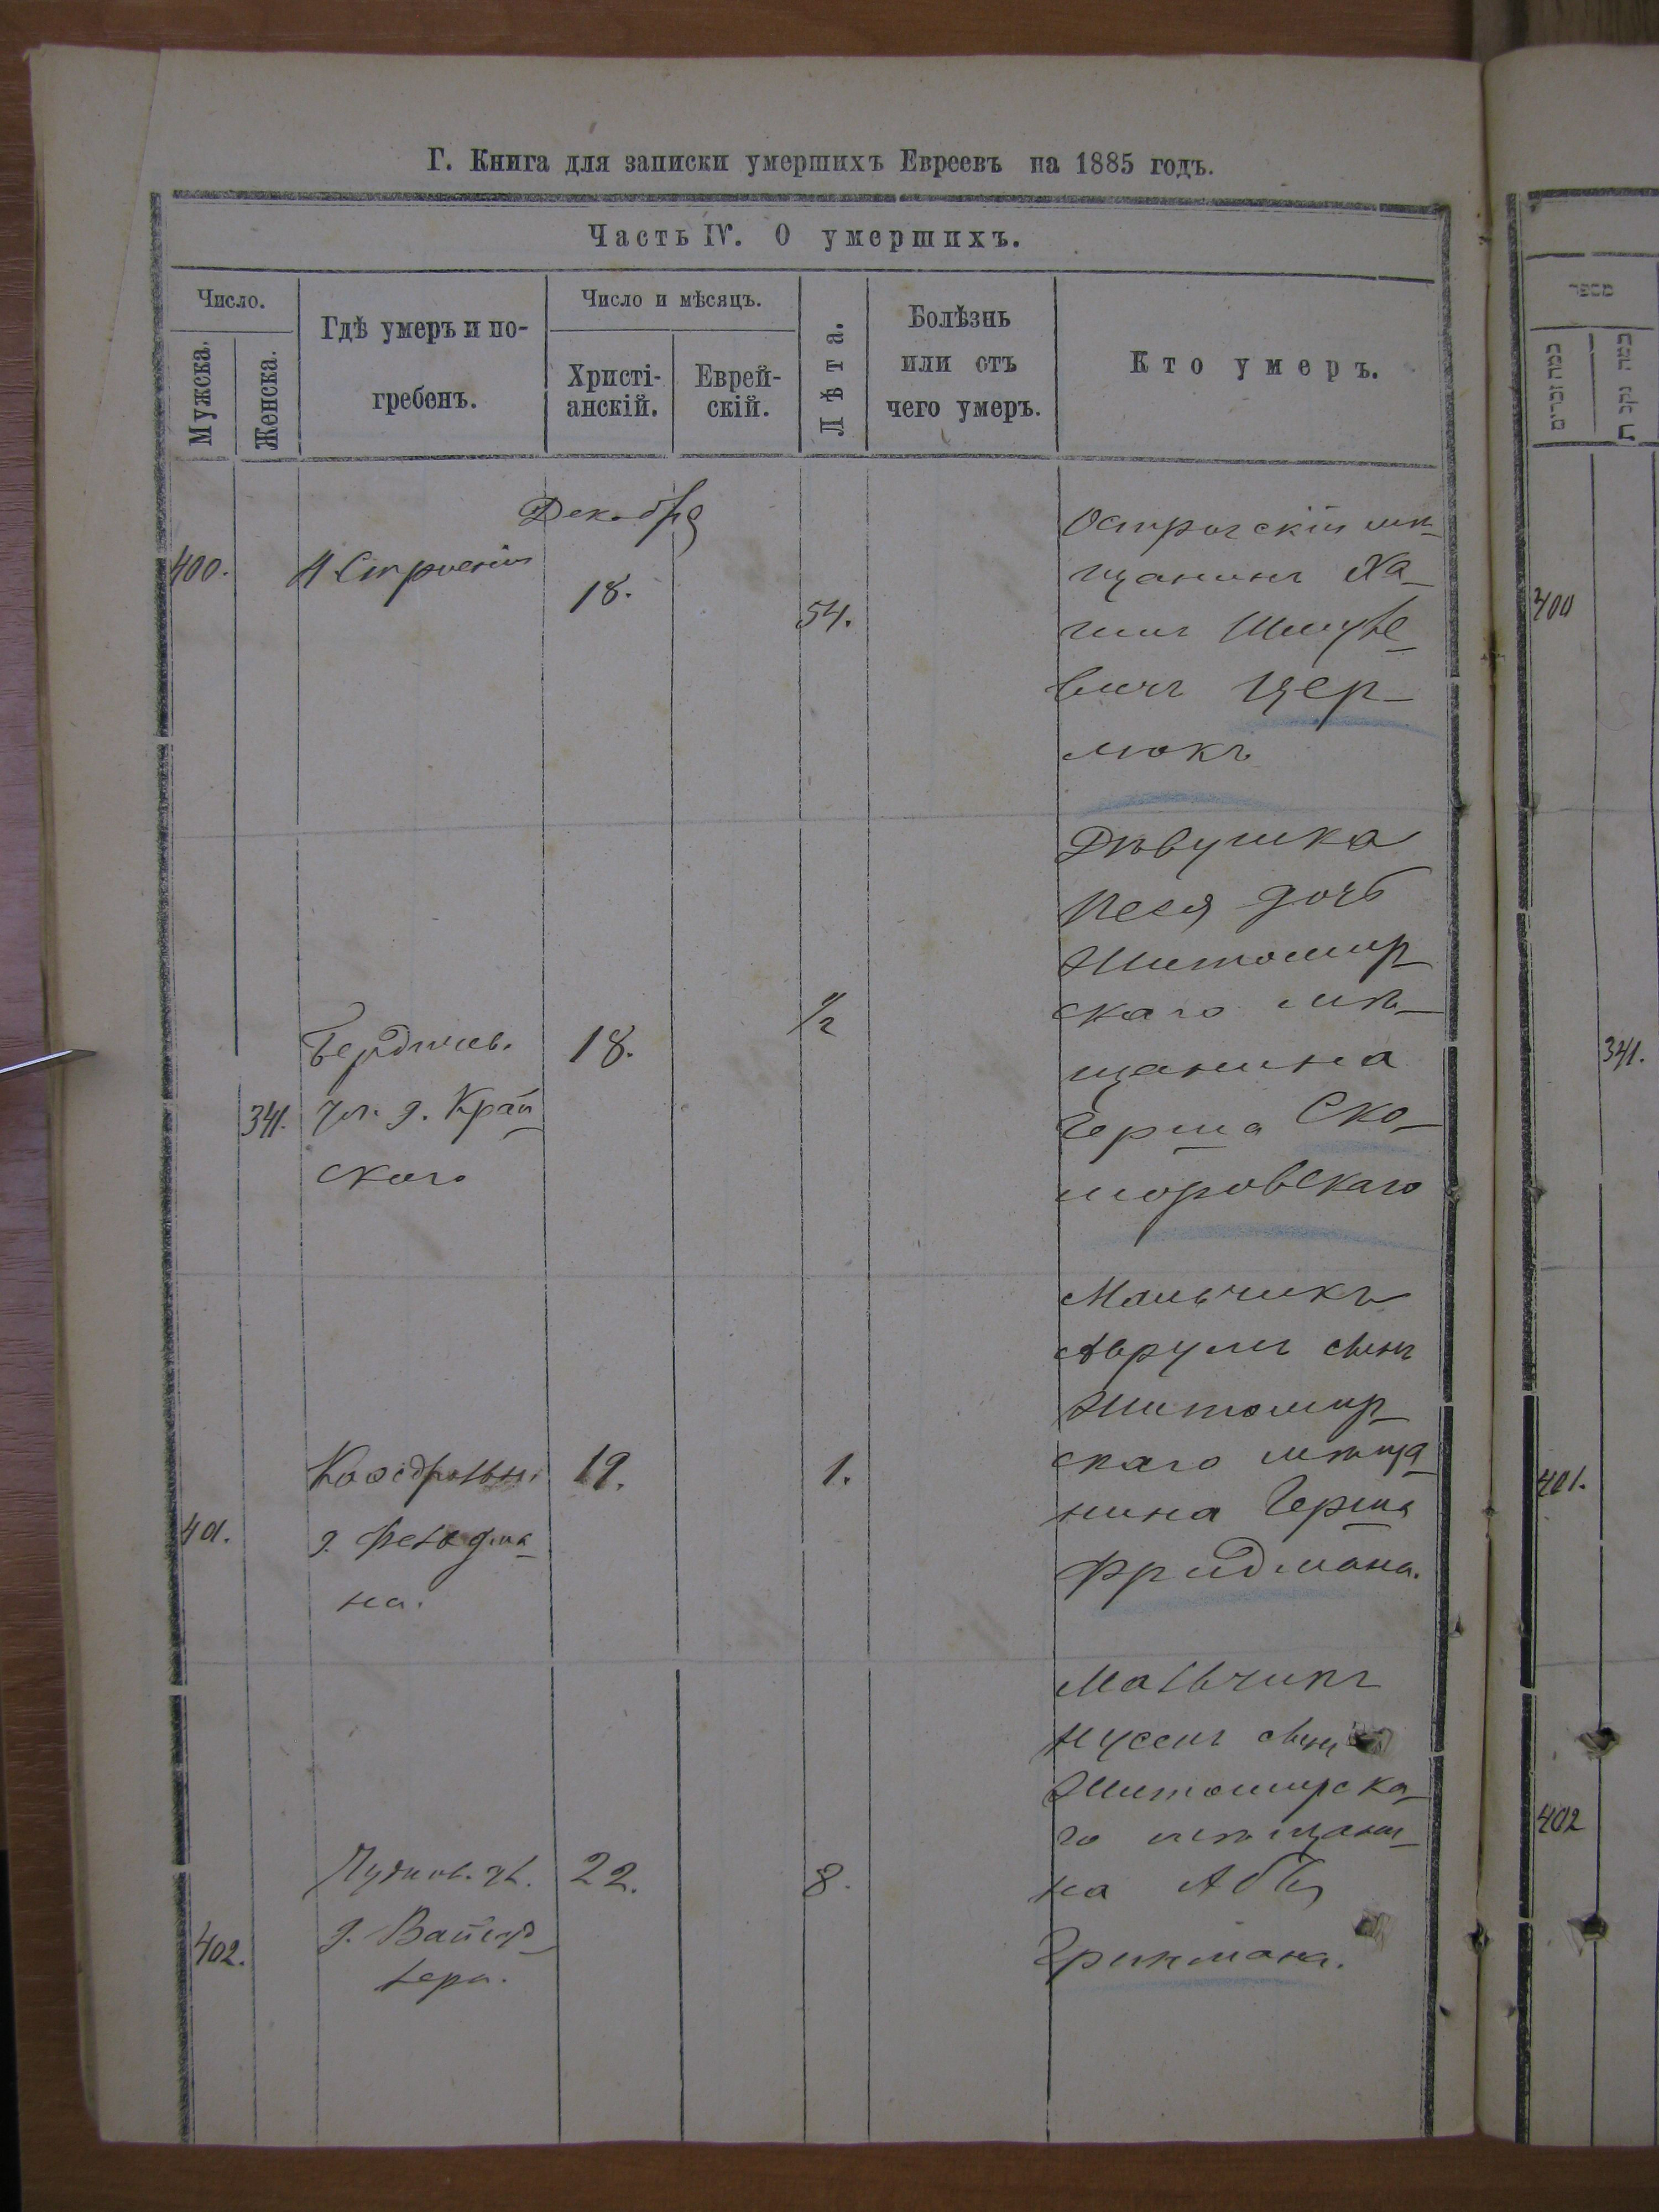 Г. Книга для записки умершихъ Евреевъ на 1885 годъ.
Часть IV. О умершихъ.
Число.
Мужска.
Женска.
Гдѣ умеръ и по-
гребенъ.
Число и мѣсяцъ.
Христі-
анскій.
Еврей-
скій.
Лѣта.
Болѣзнь
или отъ
чего умеръ.
Кто умеръ.
Декабря
400.
18.
54.
Острогскій мѣ-
щанинъ Ха-
Шмуле-
вичъ Цер-
люкъ
341.
Бердичев.
ул. д. Край-
ского
18.
1/2
Дѣвушка
Песя дочь
Житомир-
скаго мѣ-
щанина
Герша Ско-
моровскаго
401.
д. Фельдма-
на.
19.
1.
Мальчикъ
Аврумъ сынъ
Житомир-
скаго мѣща-
нина Герша
Фридмана.
402.
Чуднов. ул.
д.
22.
8.
Мальчикъ
Нусенъ сынъ
Житомирска-
го мѣщани-
на Абы
Гринмана.
מספר
במה זכרים
במה נקבת
400
341.
401.
402